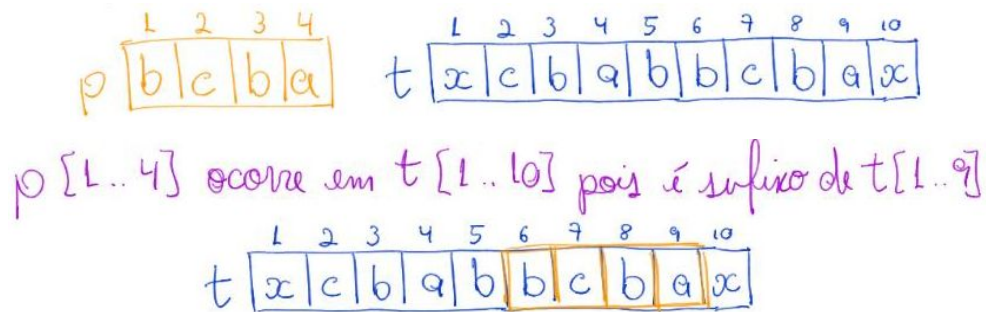 1 2 3 4 1 2 3 4 5 6 7 8 9 10
p b c b a t x c b a b b c b a x
p [1..4] ocorre em t [1..10] pois é sufixo de t[1..9]
1 2 3 4 5 6 7 8 9 10
t x c b a b b c b a x